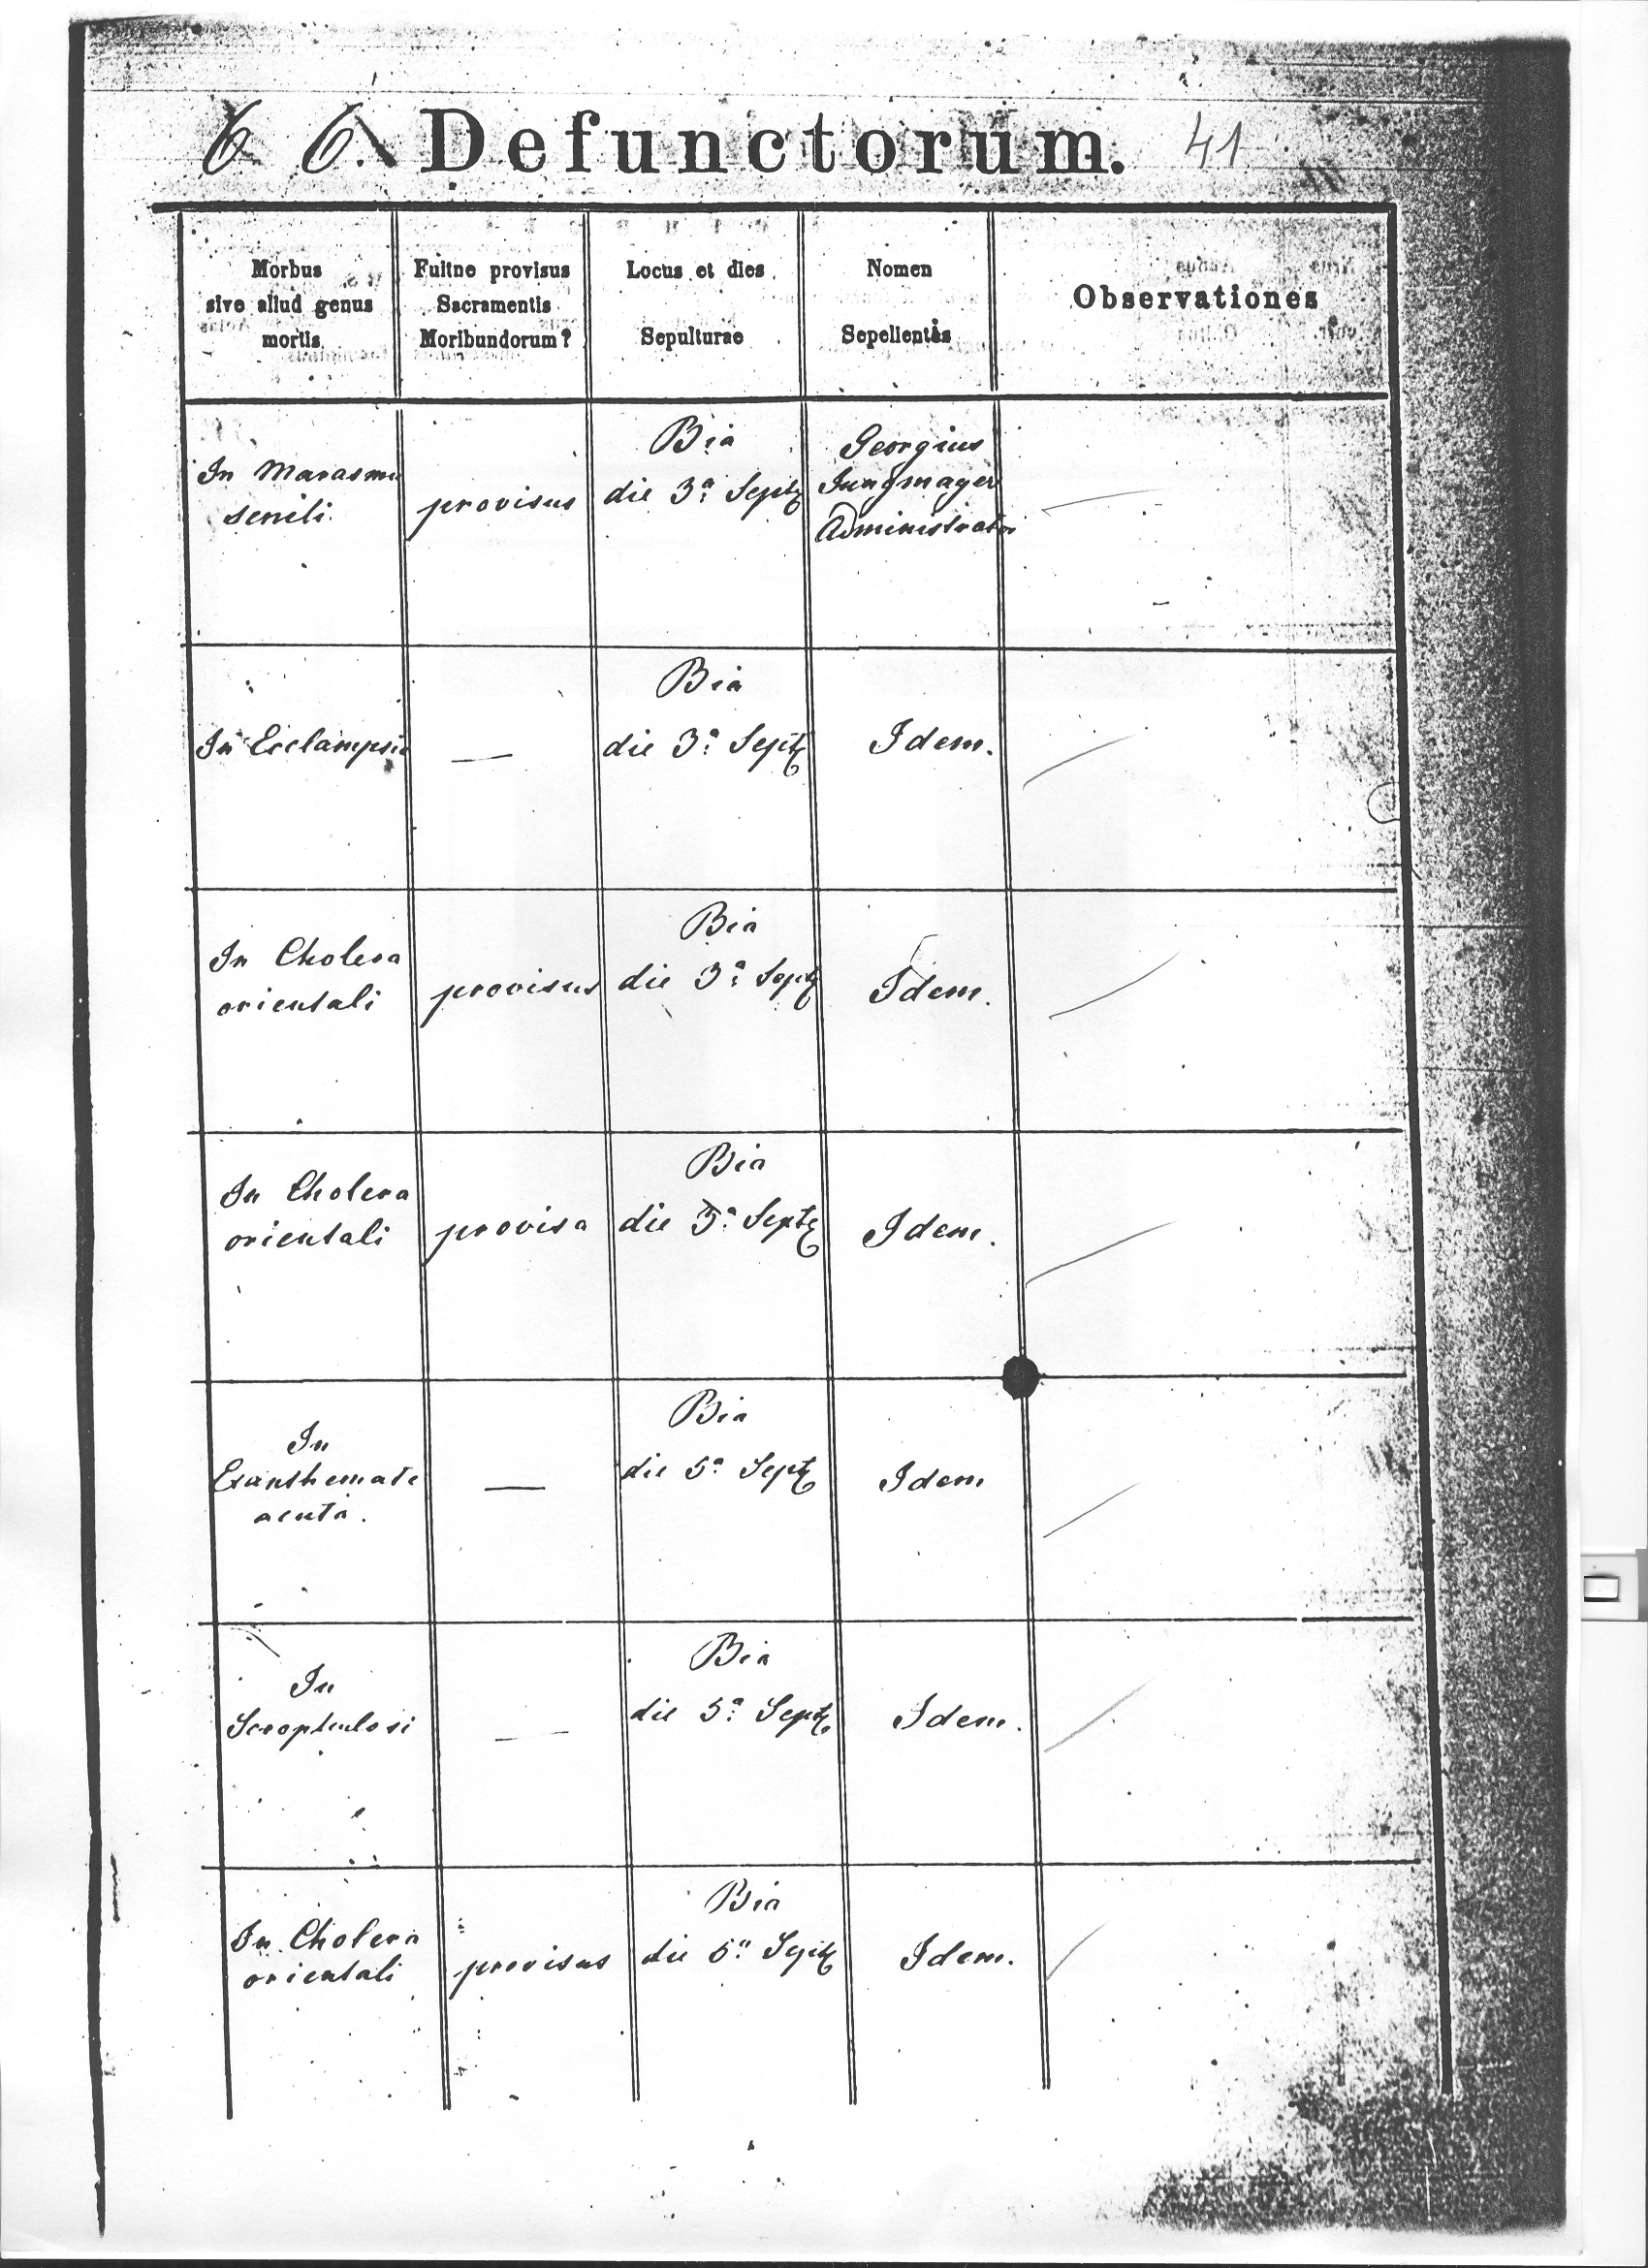 6 6. Defunctorum. 41
Morbus
sive aliud genus
mortis
Fuitne provisus
Sacramentis
Moribundorum?
Locus et dies
Sepulturae
Nomen
Sepelientis
Observationes
In Marasmu
senili.
provisus
Bia
die 3ª Sept
Georgius
Jungmayer
Administrator
In Ecclampsia
—
Bia
die 3ª Sept
Idem.
In Cholera
orientali
provisus
Bia
die 3ª Sept
Idem.
In Cholera
orientali
provisa
Bia
die 5ª Sept
Idem.
In
Exanthemate
acuta.
—
Bia
die 5ª Sept
Idem
In
Scrophulosi
—
Bia
die 5ª Sept
Idem.
In Cholera
orientali
provisus
Bia
die 5ª Sept
Idem.